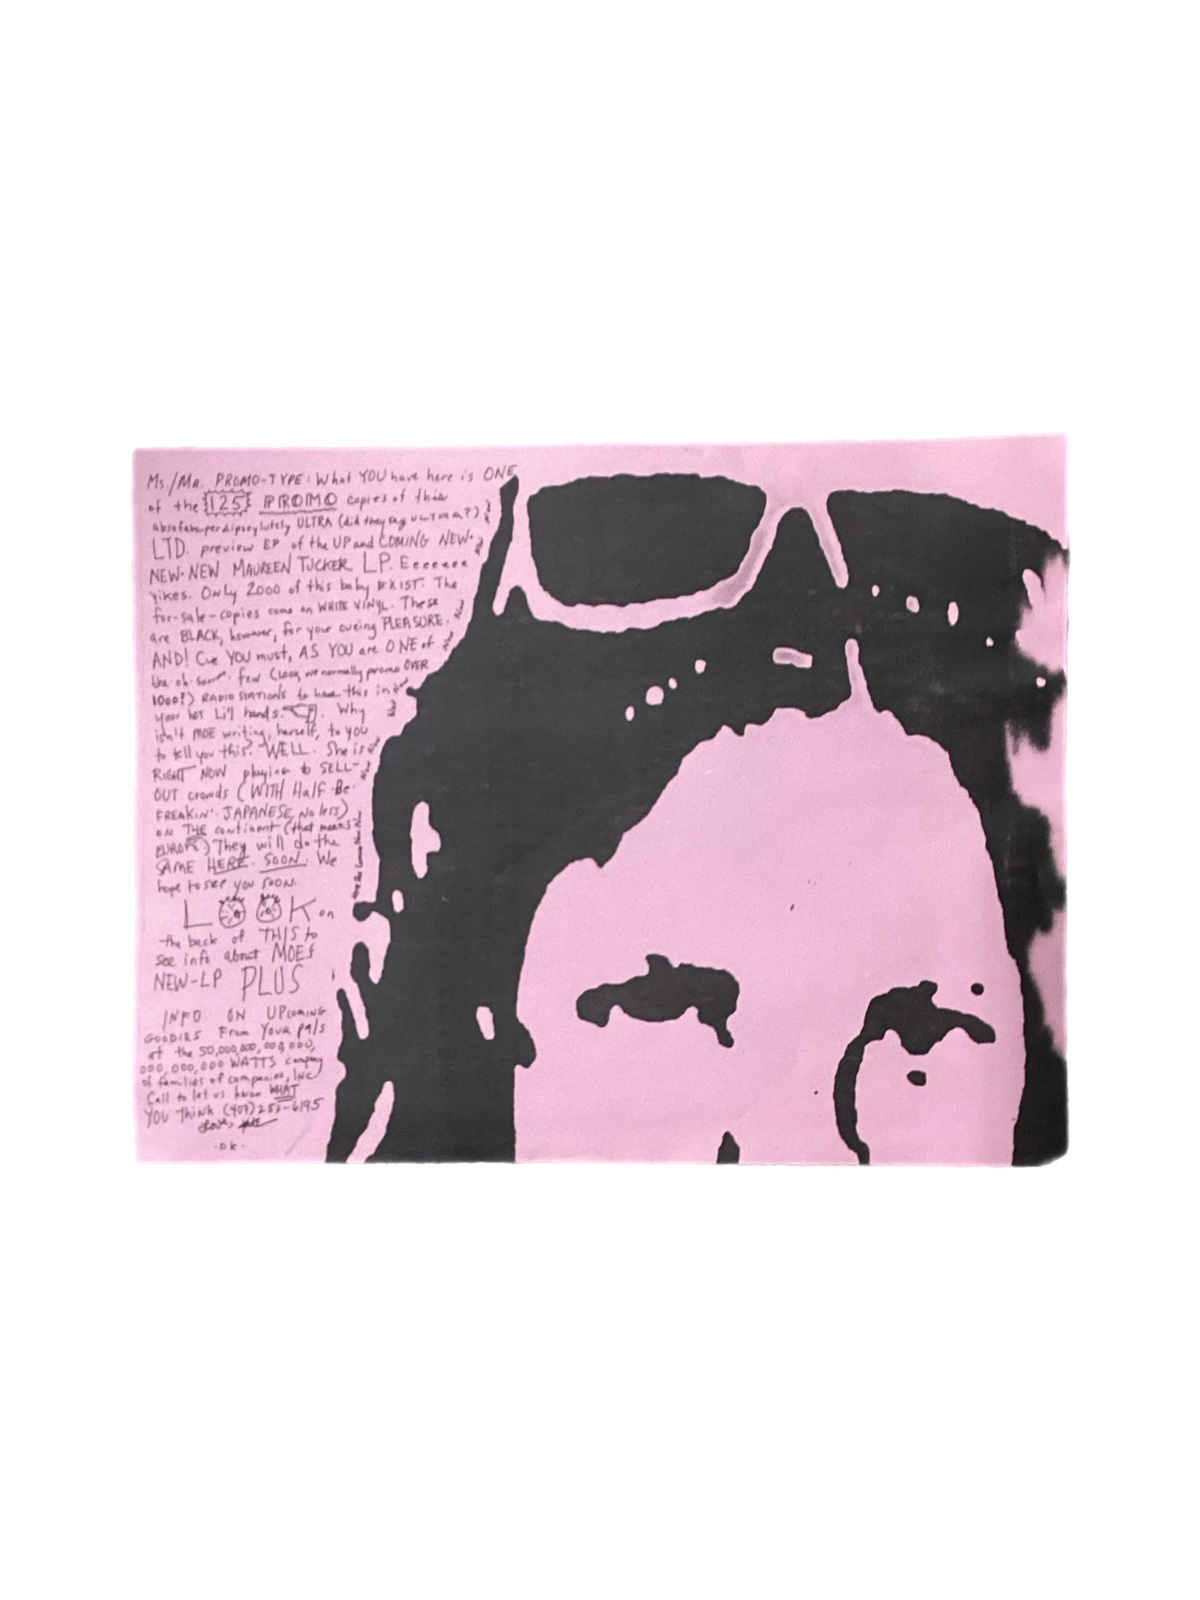 Ms./Mr. PROMO-TYPE: What YOU have here is ONE
of the 125 PROMO copies of this
ULTRA (did they say ULTRA?)
LTD. preview EP of the UP and COMING NEW-
NEW-NEW MAUREEN TUCKER LP. Eeeeeee
yikes. Only 2000 of this baby EXIST. The
for-sale-copies come on WHITE VINYL. These
are BLACK, however, for your cueing PLEASURE.
AND! Cue YOU must, AS YOU are ONE of
the oh-soooo few (LOOK, we normally promo OVER
1000!) RADIO STATIONS to have this in
your hot Li'l hands. Why
isn't MOE writing, herself, to you
to tell you this? WELL. She is
RIGHT NOW playing to SELL-
OUT crowds (WITH Half-Be-
FREAKIN'-JAPANESE, No less)
ON THE continent (that means
EUROPE) They will do the
SAME HERE. SOON. We
hope to see you soon.
LOOK on
the back of THIS to
see info about MOE's
NEW-LP PLUS
INFO ON UPcoming
GOODIES From Your pals
at the 50,000,000,000,000,
000,000,000 WATTS company
of families of companies, INC.
Call to let us know WHAT
YOU Think (407) 253-6195
Love,
-OK-